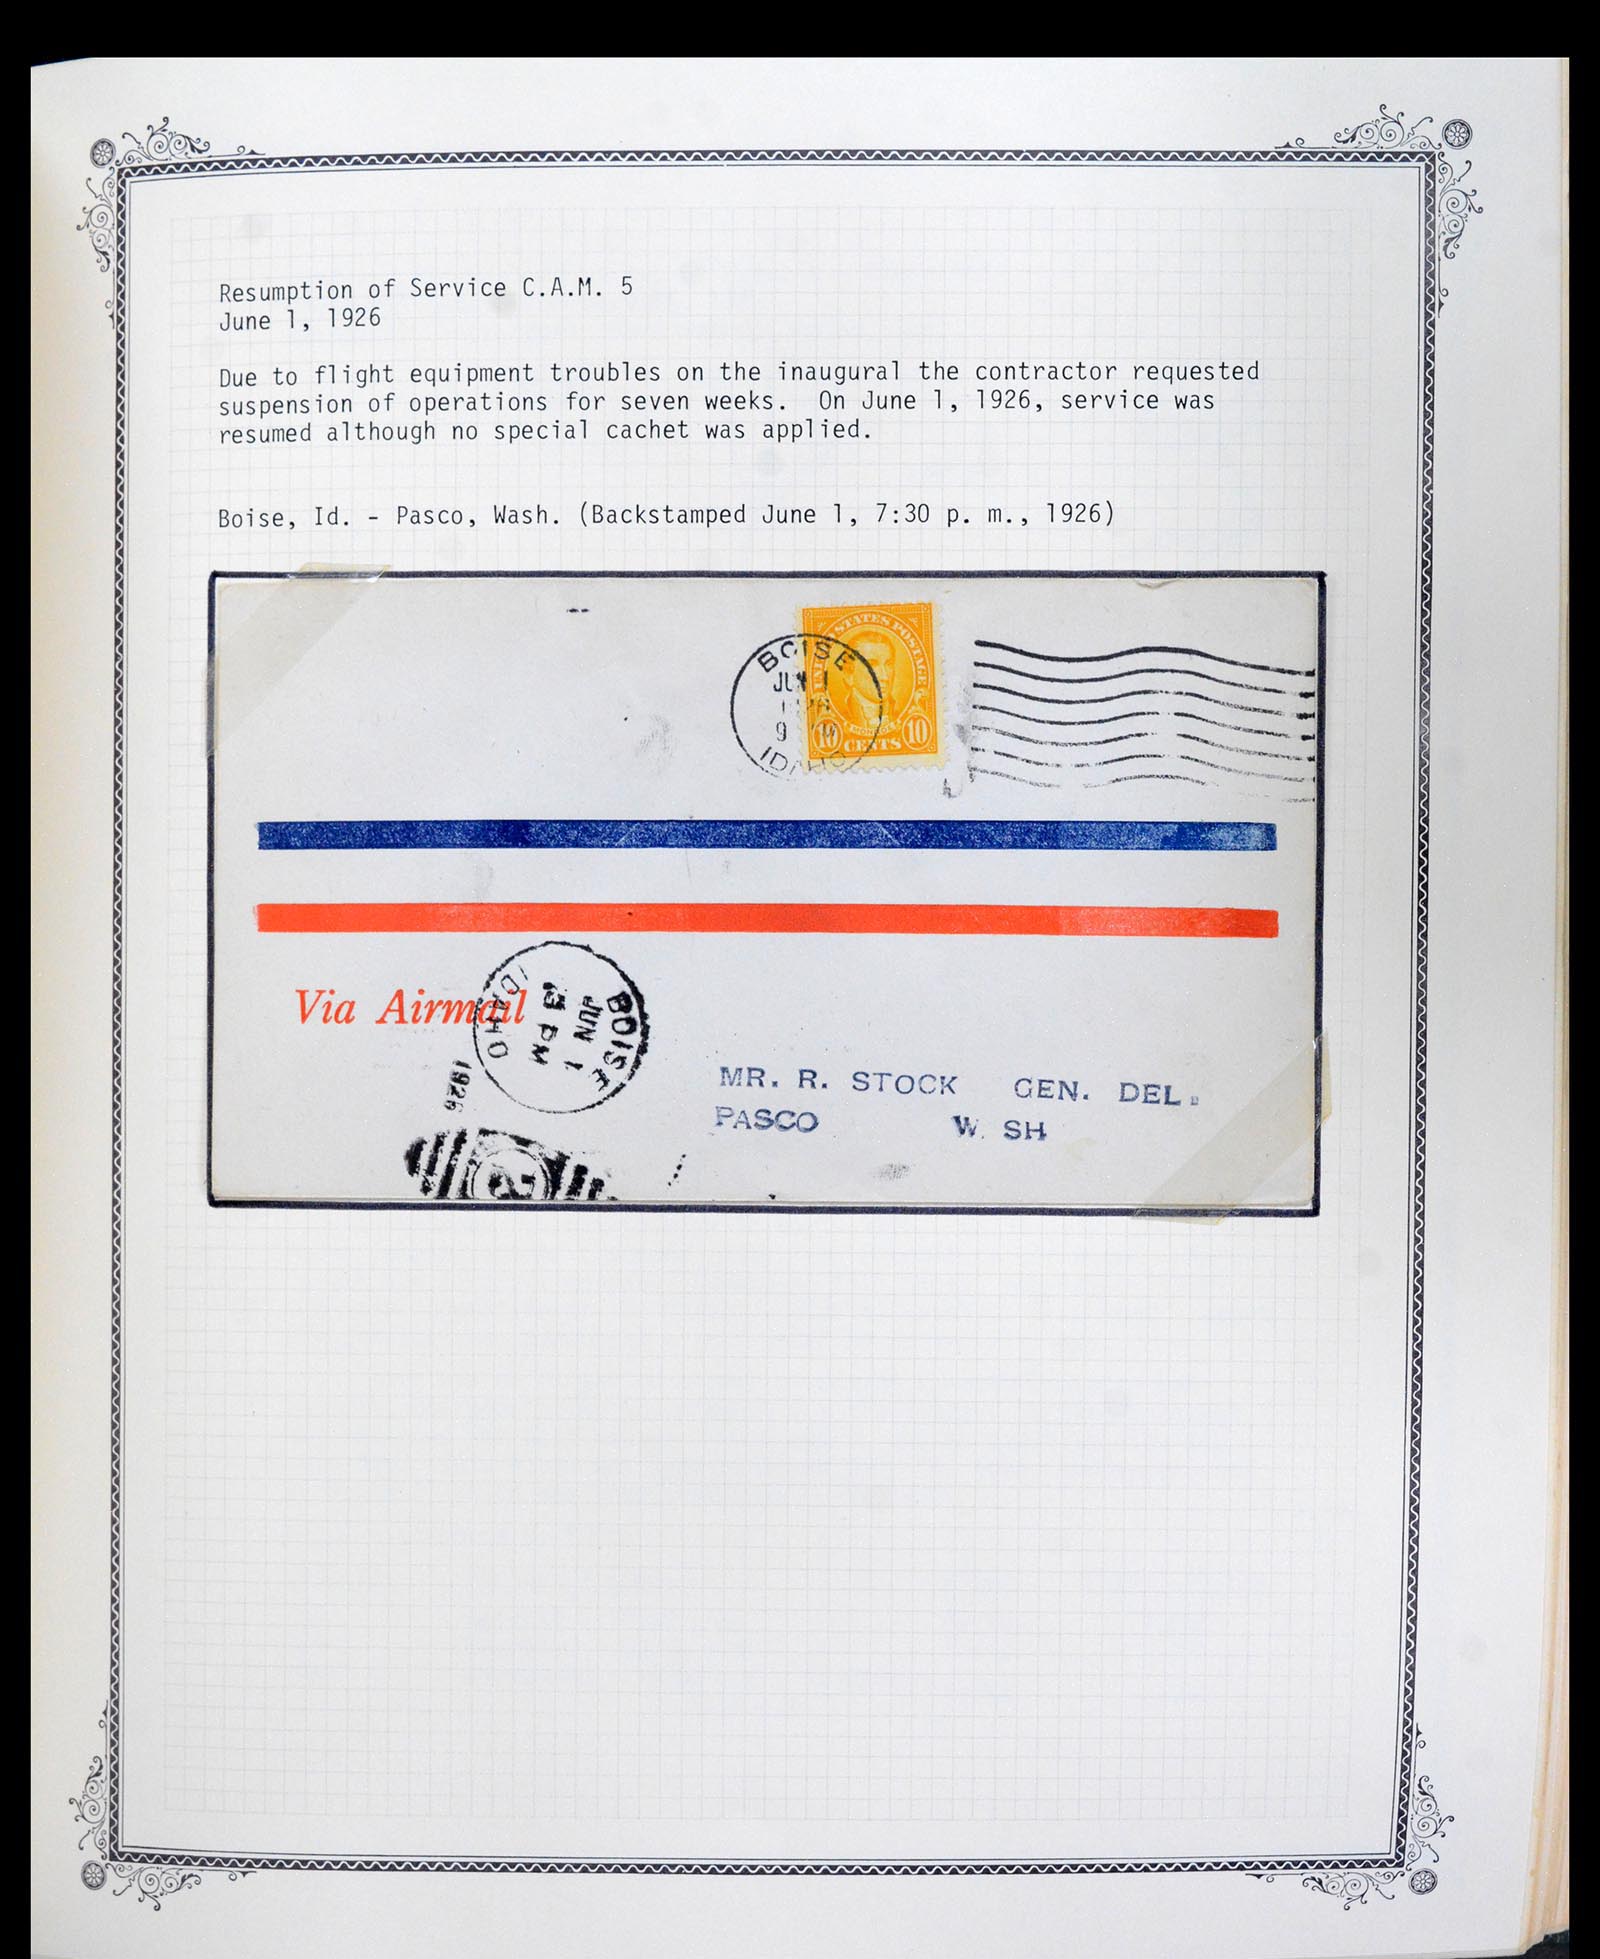 Resumption of Service C.A.M. 5
June 1, 1926
Due to flight equipment troubles on the inaugural the contractor requested
suspension of operations for seven weeks. On June 1, 1926, service was
resumed although no special cachet was applied.
Boise, Id. - Pasco, Wash. (Backstamped June 1, 7:30 p. m., 1926)
UNITED STATES POSTAGE
MONROE
10 CENTS 10
BOISE
JUN 1
IDAHO
Via Airmail
BOISE
JUN 1
3 PM
IDAHO
1926
MR. R. STOCK GEN. DEL.
PASCO W SH